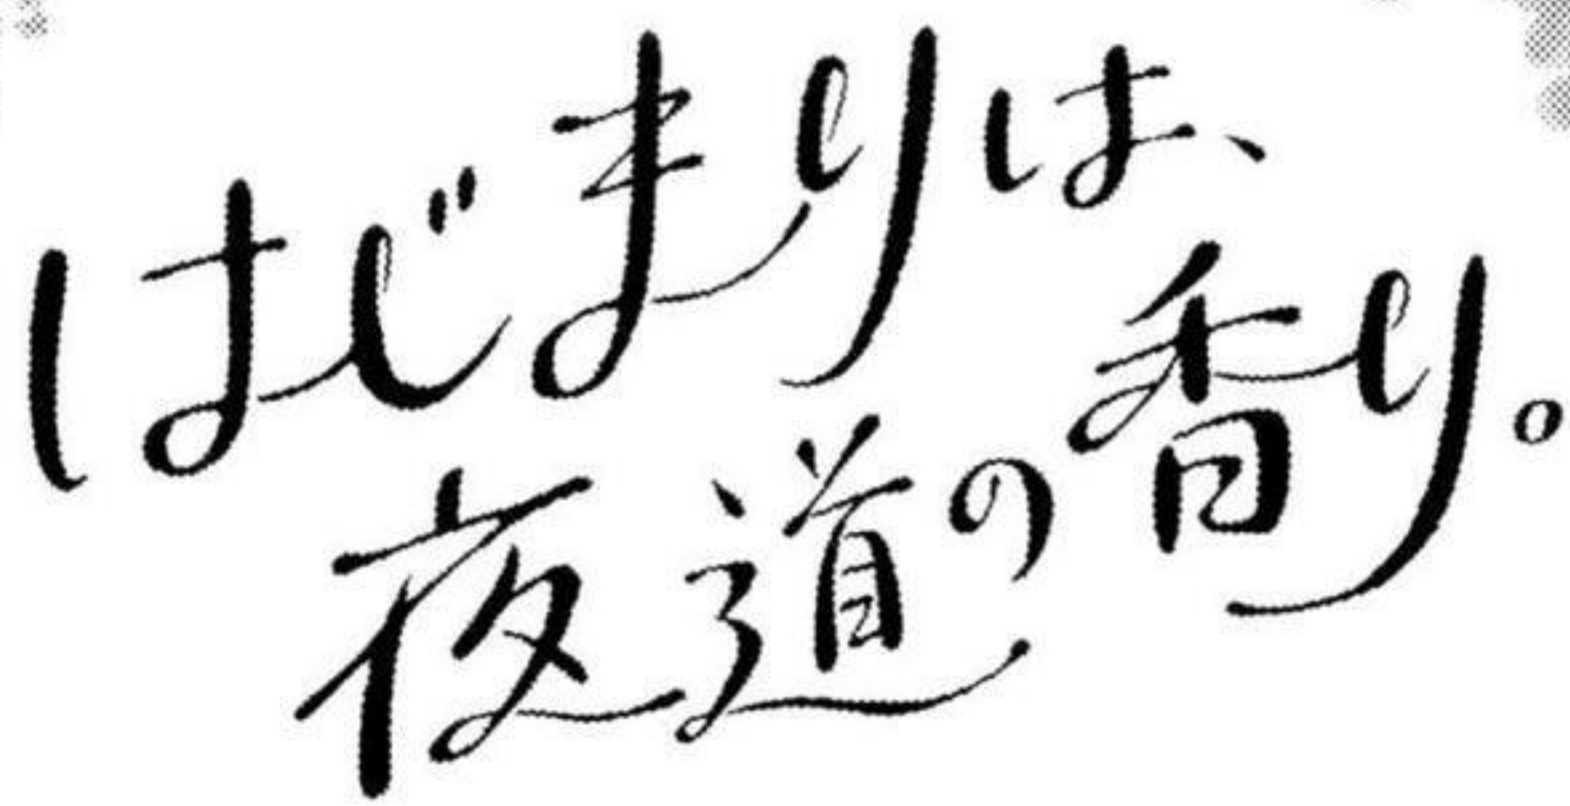 はじまりは、
夜道の香り。